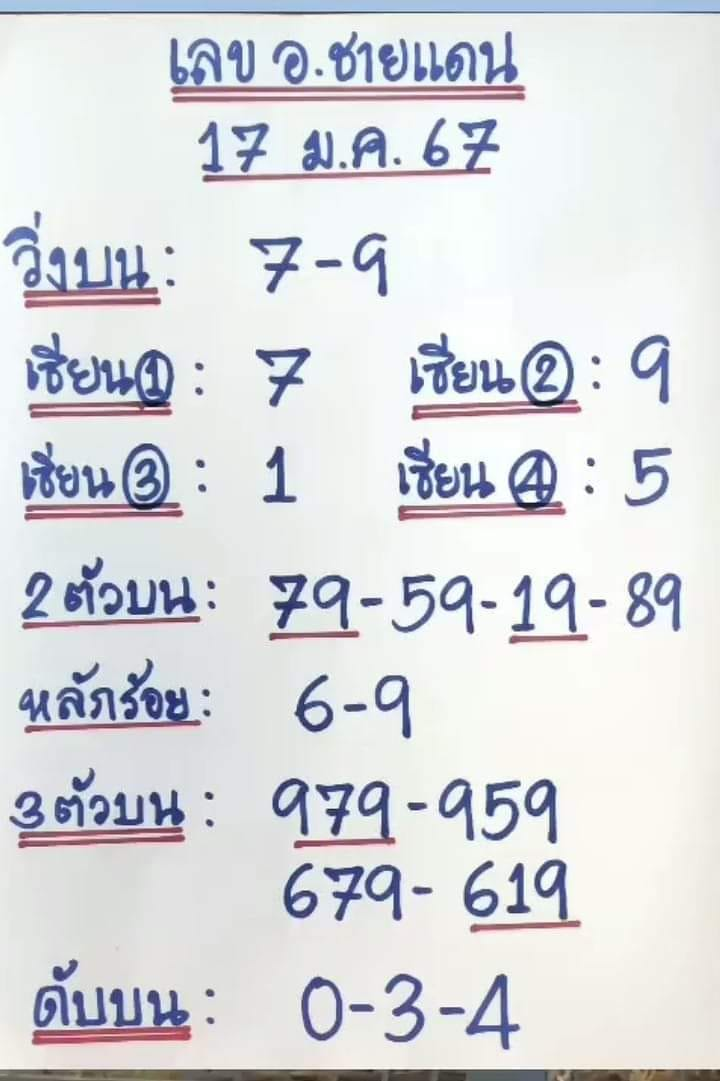 เลข อ.ชายแดน
17 ม.ค. 67
วิ่งบน : 7-9
เซียน① : 7 เซียน② : 9
เซียน③ : 1 เซียน④ : 5
2ตัวบน : 79-59-19-89
หลักร้อย : 6-9
3ตัวบน : 979-959
679-619
ดับบน : 0-3-4